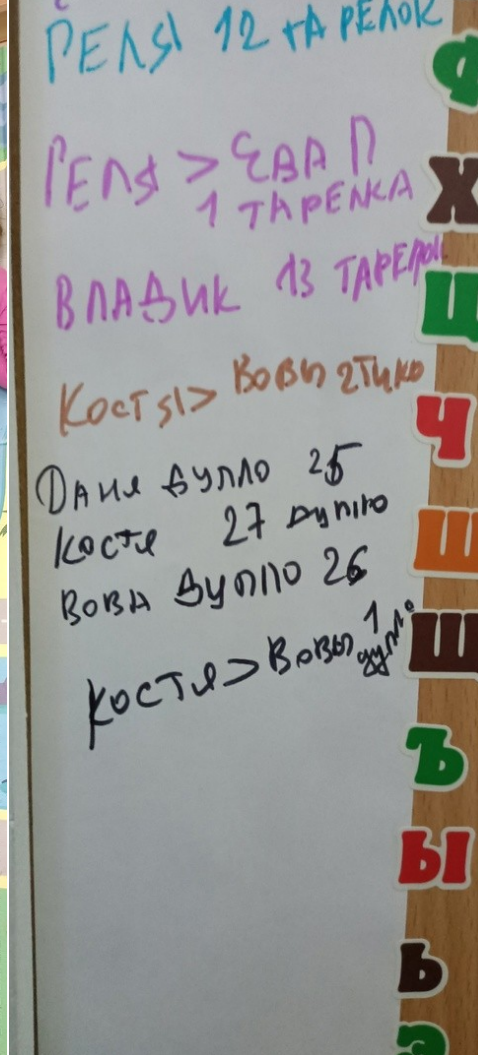 ГЕЛЯ 12 ТАРЕЛОК
ГЕЛЯ > ЕВА П
1 ТАРЕЛКА
ВЛАДИК 13 ТАРЕЛОК
КОСТЯ > ВОВЫ 2
ДАНЯ ДУПЛО 25
КОСТЯ 27 ДУПЛО
ВОВА ДУПЛО 26
КОСТЯ > ВОВЫ 1
дупло
Ф
Х
Ц
Ч
Ш
Щ
Ъ
Ы
Ь
Э